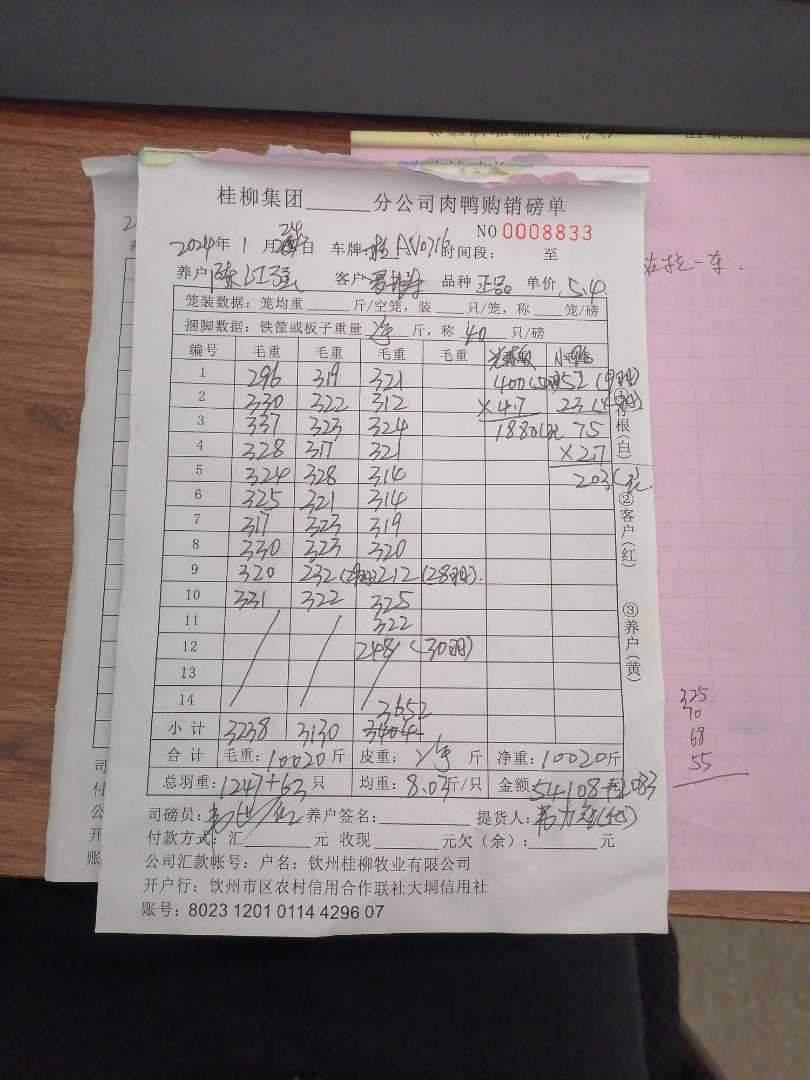 桂柳集团______分公司肉鸭购销磅单
NO 0008833
2024年 1 月 24 日 车牌: AV0716 时间段: 至
养户 陈 客户 品种 正品 单价 5.4
笼装数据: 笼均重____斤/空笼, 装___只/笼, 称___笼/磅
捆脚数据: 铁筐或板子重量 净 斤, 称 40 只/磅
编号 毛重 毛重 毛重 毛重
1 296 319 321 400 52
2 330 322 312 ×4.7 23
3 337 323 324 1880 75
4 328 317 321 ×2.7
5 324 328 314 203
6 325 321 314
7 317 323 319
8 330 323 320
9 320 232 212 (28羽).
10 331 322 325
11 322
12 248 (30羽)
13
14 3652
小计 3238 3130 3404
合计 毛重: 10020斤 皮重: 净 斤 净重: 10020斤
总羽重: 1247+63 只 均重: 8.03斤/只 金额: 54108+2083
司磅员: 养户签名:________ 提货人:
付款方式: 汇______元 收现______元欠(余):______元
公司汇款帐号: 户名: 钦州桂柳牧业有限公司
开户行: 饮州市区农村信用合作联社大垌信用社
账号: 8023 1201 0114 4296 07
①存根(白)
②客户(红)
③养户(黄)
一车.
325
70
68
55